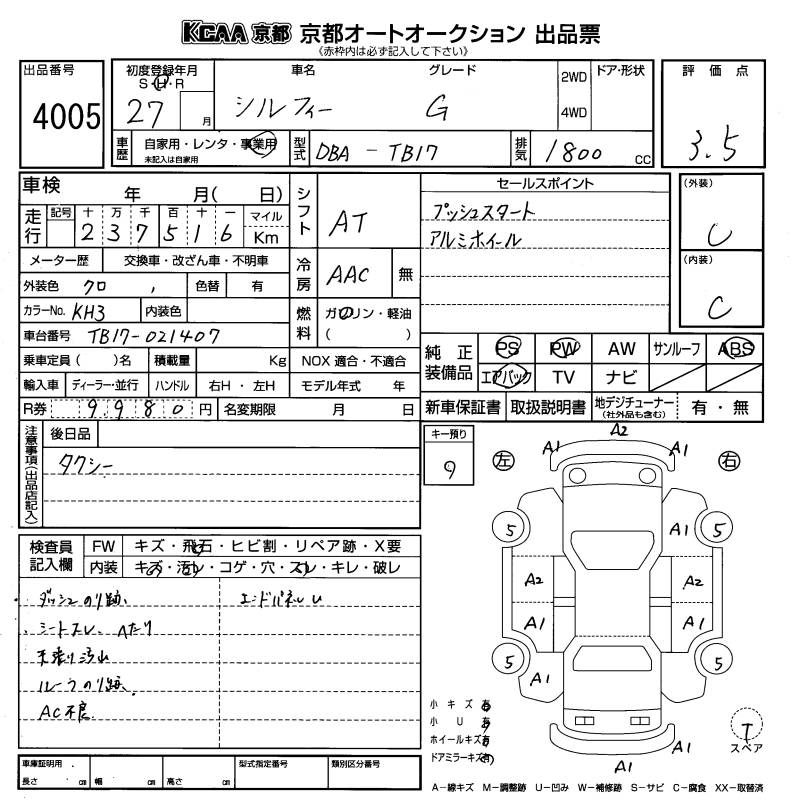 KCAA 京都 京都オートオークション 出品票
《赤枠内は必ず記入して下さい》
出品番号 4005
初度登録年月 S・H・R 27 月
車名 シルフィー
グレード G
2WD 4WD
ドア・形状
評価点 3.5
車歴 自家用・レンタ・事業用 未記入は自家用
型式 DBA-TB17
排気 1800 CC
車検 年 月( 日)
走行 記号 十 万 千 百 十 一 マイル
237516 Km
シフト AT
セールスポイント
プッシュスタート
アルミホイール
(外装) C
(内装) C
メーター歴 交換車・改ざん車・不明車
冷房 AAC 無
外装色 クロ , 色替 有
カラーNo. KH3 内装色
燃料 ガソリン・軽油 ( )
車台番号 TB17-021407
乗車定員( )名 積載量 Kg NOX 適合・不適合
純正装備品 PS PW AW サンルーフ ABS
エアバック TV ナビ
輸入車 ディーラー・並行 ハンドル 右H・左H モデル年式 年
R券 9980円 名変期限 月 日
新車保証書 取扱説明書 地デジチューナー (社外品も含む) 有・無
注意事項(出品店記入)
後日品
タクシー
キー預り 9
左 右
A1 A2 A1
5 A1 5
A2 A2
A1 A1
5 A1 5
A1
A1
検査員記入欄
FW キズ・飛石・ヒビ割・リペア跡・X要
内装 キズ・汚レ・コゲ・穴・スレ・キレ・破レ
ダッシュのり跡 エンドパネルU
シートスレ、へたり
天張り汚
ルーフのり跡
AC不良
小キズ有
小U有
ホイールキズ有
ドアミラーキズ有
T スペア
車庫証明用 長さ cm 幅 cm 高さ cm 型式指定番号 類別区分番号
A-線キズ M-調整跡 U-凹み W-補修跡 S-サビ C-腐食 XX-取替済